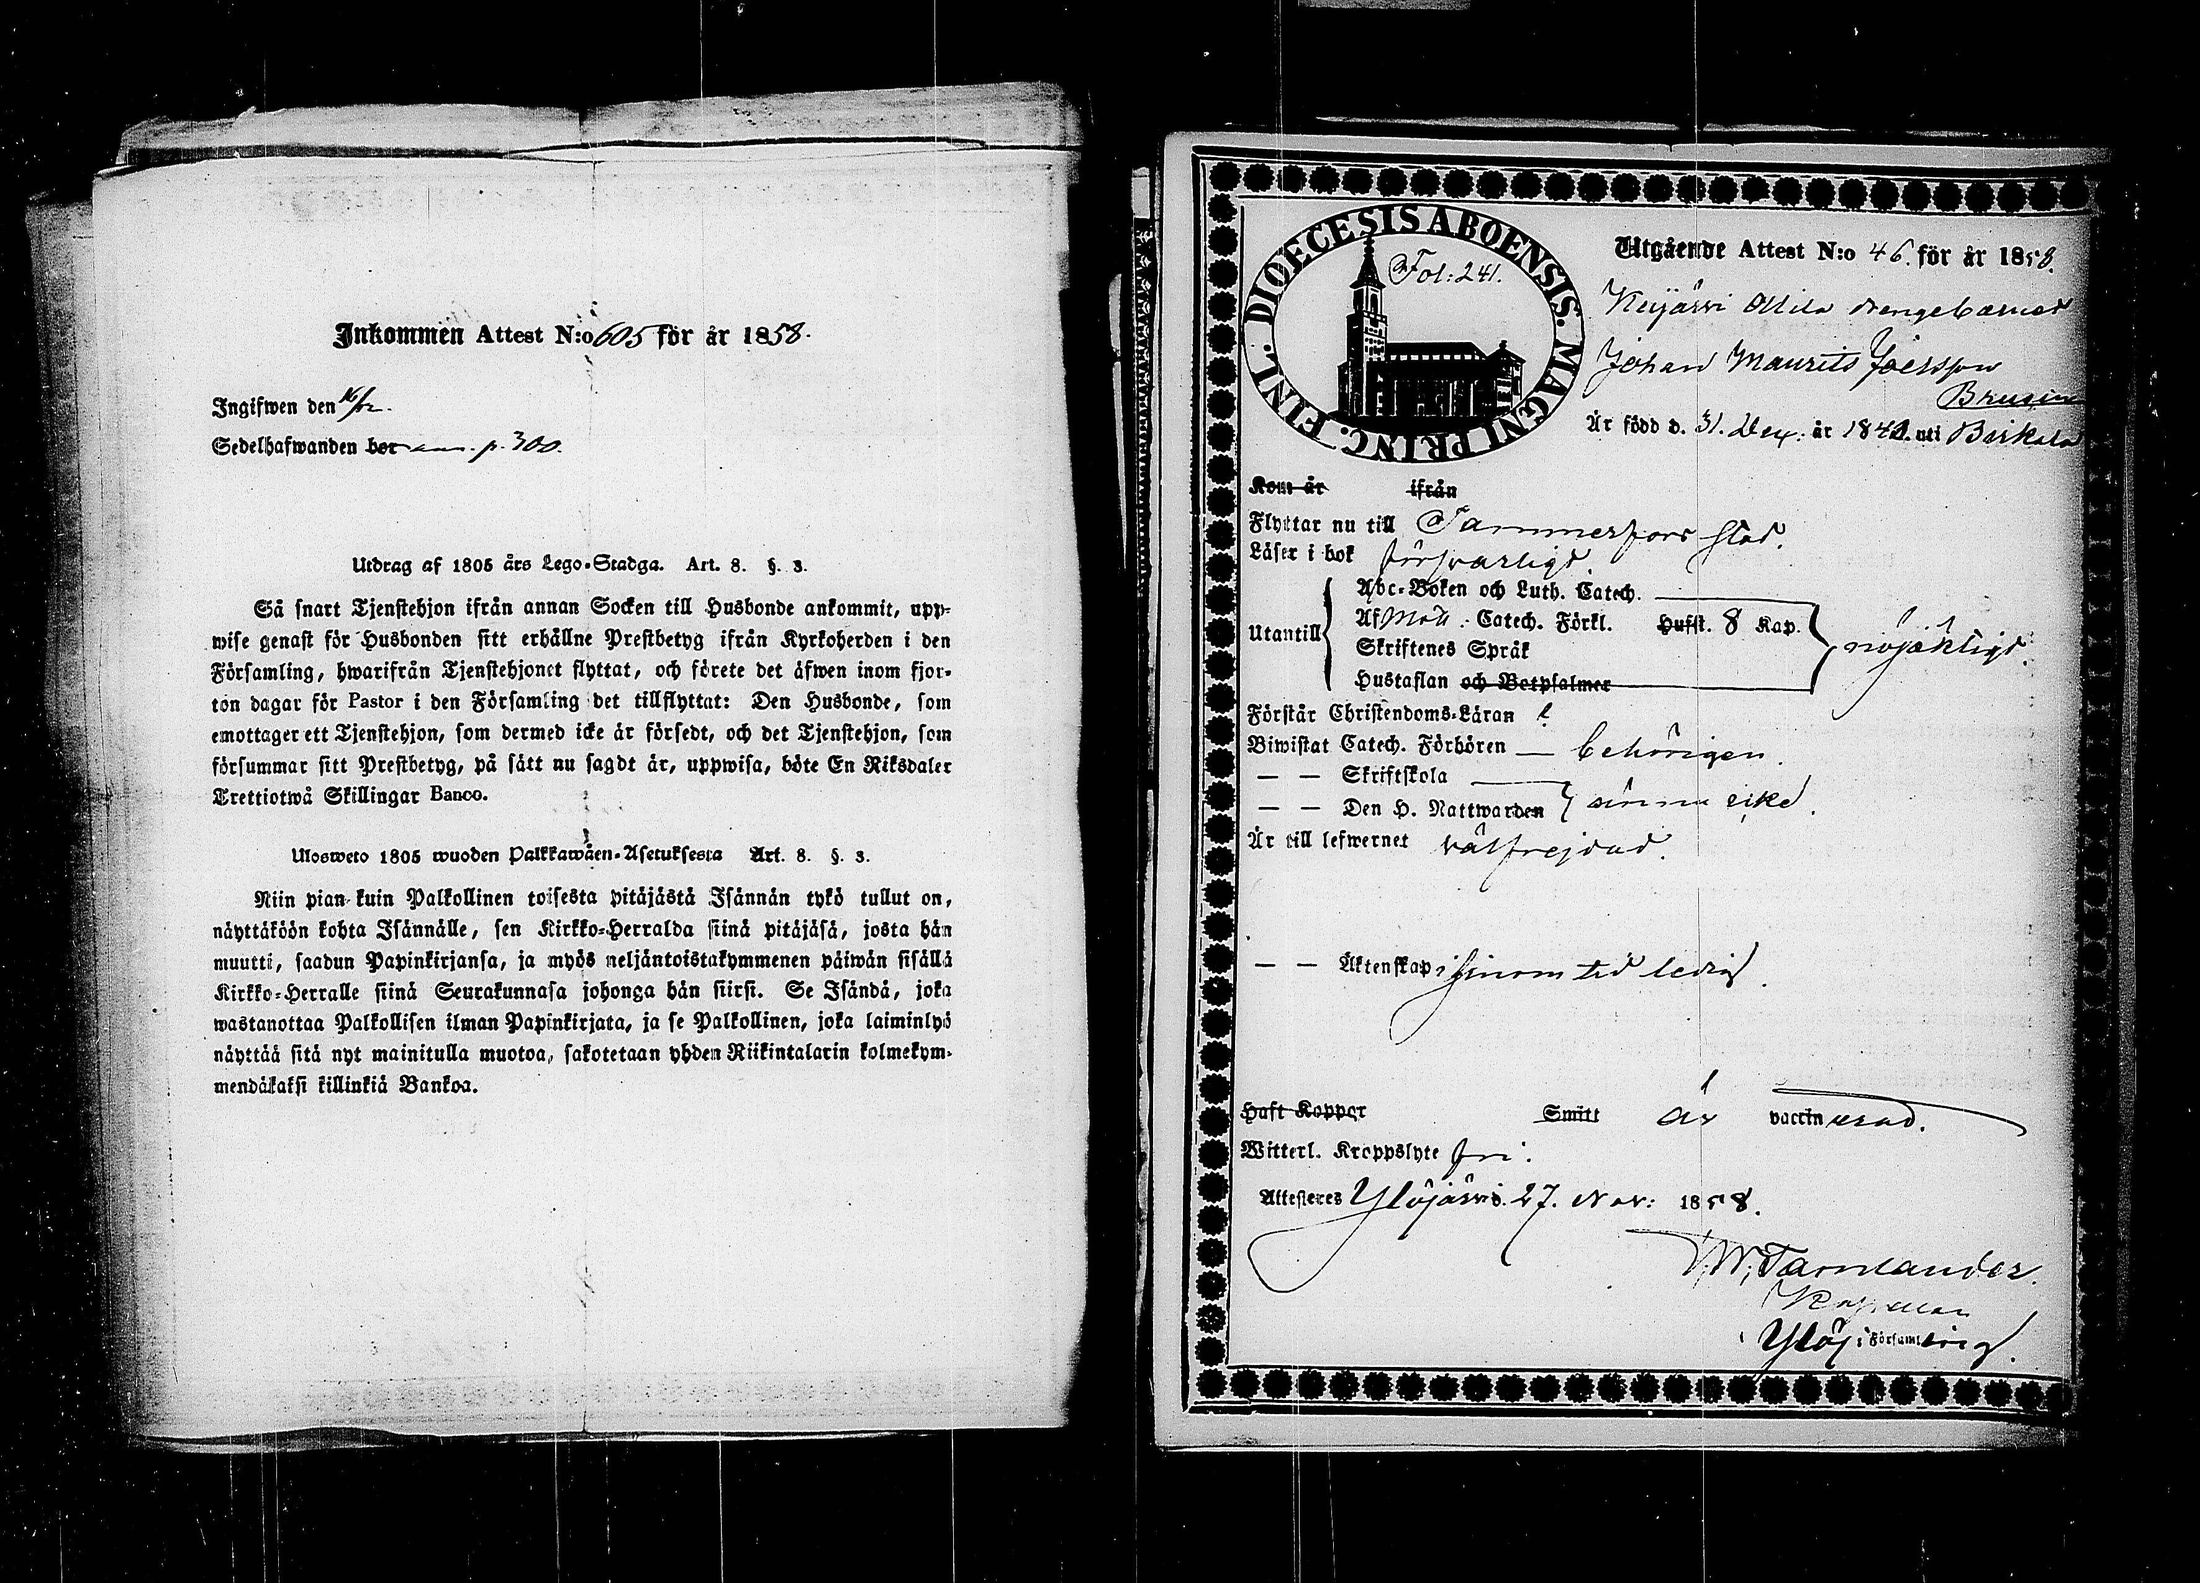 Inkommen Attest N:o 605 för år 1858.
Ingifwen den 16/12.
Sedelhafwanden bor ann. p. 300.
Utdrag af 1805 års Lego-Stadga. Art. 8. §. 3.
Så snart Tjenstehjon ifrån annan Socken till Husbonde ankommit, upp-
wise genast för Husbonden sitt erhållne Prestbetyg ifrån Kyrkoherden i den
Församling, hwarifrån Tjenstehjonet flyttat, och förete det äfwen inom fjor-
ton dagar för Pastor i den Församling det tillflyttat: Den Husbonde, som
emottager ett Tjenstehjon, som dermed icke är försedt, och det Tjenstehjon, som
försummar sitt Prestbetyg, på sätt nu sagdt är, uppwisa, böte En Riksdaler
Trettiotwå Skillingar Banco.
Ulosweto 1805 wuoden Palkkawäen-Asetuksesta Art. 8. §. 3.
Niin pian kuin Palkollinen toisesta pitäjästä Isännän tykö tullut on,
näyttäköön kohta Isännälle, sen Kirkko-Herralda siinä pitäjäsä, josta hän
muutti, saadun Papinkirjansa, ja myös neljäntoistakymmenen päiwän sisällä
Kirkko-Herralle siinä Seurakunnasa johonga hän siirsi. Se Isändä, joka
wastanottaa Palkollisen ilman Papinkirjata, ja se Palkollinen, joka laiminlyö
näyttää sitä nyt mainitulla muotoa, sakotetaan yhden Riikintalarin kolmekym-
mendäkaksi killinkiä Bankoa.
DIOECESIS ABOENSIS. MAGNI PRINC. FINL.
Fol: 241.
Utgående Attest N:o 46. för år 1858.
Keijärvi Mila drengebarnet
Johan Maurits
Är född d. 31. Dec. år uti Birkala
Kom år ifrån
Flyttar nu till Tammerfors stad.
Läser i bok försvarligt.
Utantill
Abc-Boken och Luth. Catech.
Af Möll. Catech. Förkl. Hufst. 8 Kap.
Skriftenes Språk
Hustaflan och Botpsalmer
nöjaktigt.
Förstår Christendoms-Läran
Biwistat Catech. Förhören — behörigen.
— — Skriftskola
— — Den H. Nattwarden
Är till lefwernet välfrejdad.
— — Äktenskap ledig.
Haft Koppor Smitt är vaccinerad.
Witterl. Kroppslyte fri.
Attesteres Ylöjärvi d. 27. Nov: 1858.
Tamlander.
Kapellan
i Ylöj: Församling.